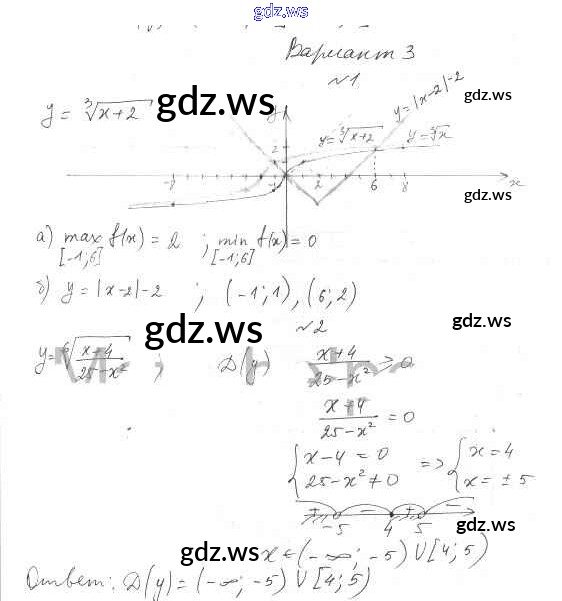 gdz.ws
Вариант 3
№1
y = ∛(x+2)
gdz.ws
gdz.ws
y
y=|x-2|-2
y=∛(x+2)
y=∛x
2
-8
-1
2
6
8
x
gdz.ws
а) max f(x) = 2 ; min f(x) = 0
[-1;6] [-1;6]
gdz.ws
б) y = |x-2|-2 ; (-1;1), (6;2)
№2
gdz.ws
gdz.ws
y = ⁶√((x+4)/(25-x²)) ; D(y) (x+4)/(25-x²) ≥ 0
(x+4)/(25-x²) = 0
{ x-4 = 0
25-x² ≠ 0 => { x = 4
x = ± 5
+ - + -
-5 4 5
gdz.ws
gdz.ws
x ∈ (-∞; -5) ∪ [4; 5)
Ответ: D(y) = (-∞; -5) ∪ [4; 5)
gdz.ws